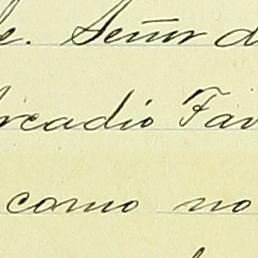 e. Señor d
rcadio Fav
como no